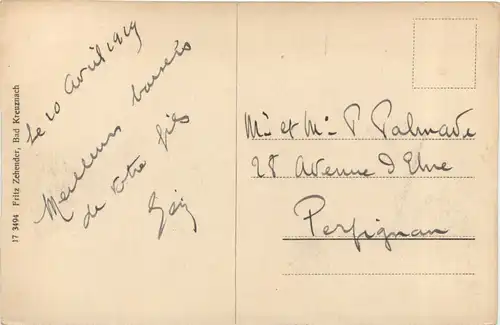 Le 10 Avril 1919
Meilleurs baisers
de votre fils
17 3494 Fritz Zehender, Bad Kreuznach
Mr et Me P Palmade
28 Avenue d Elne
Perpignan